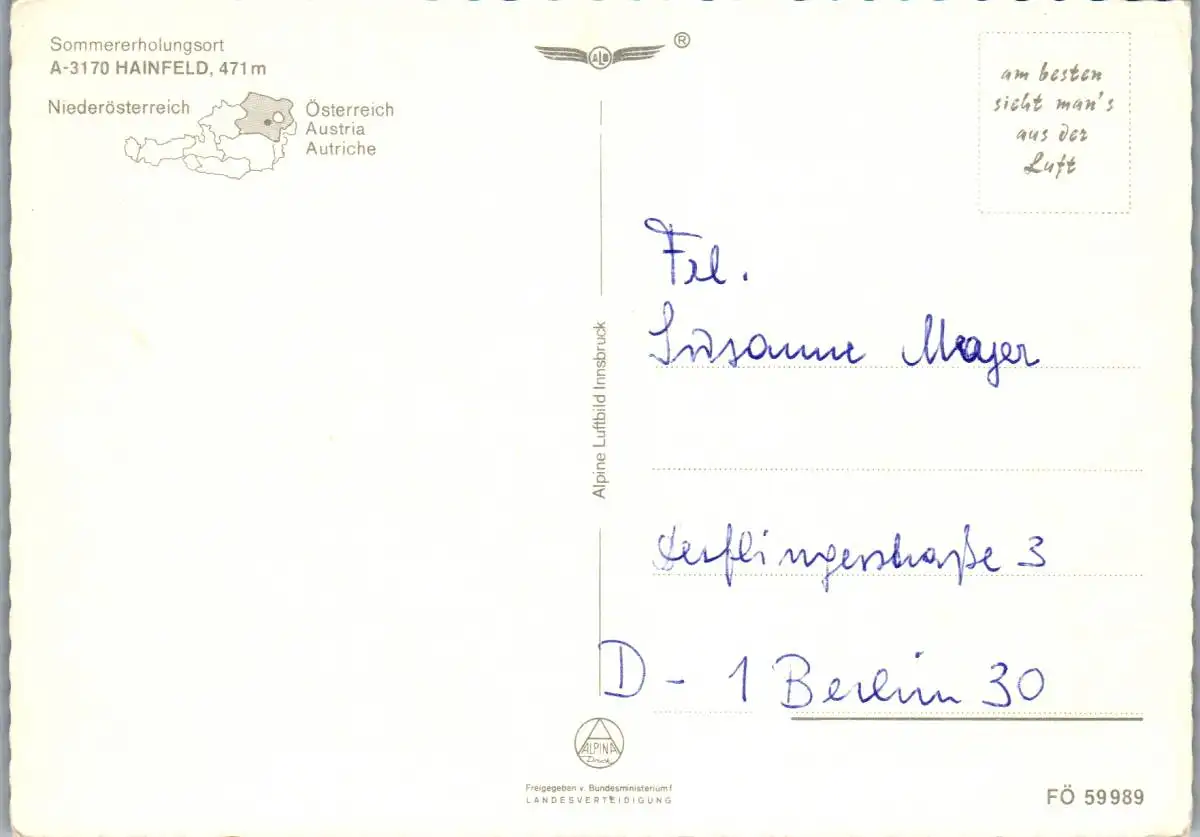 Sommererholungsort
A-3170 HAINFELD, 471m
Niederösterreich
Österreich
Austria
Autriche
ALB
®
am besten
sieht man's
aus der
Luft
Frl.
Susanne Mayer
Derflingerstraße 3
D - 1 Berlin 30
Alpine Luftbild Innsbruck
ALPINA
Druck
Freigegeben v. Bundesministerium f
LANDESVERTEIDIGUNG
FÖ 59989